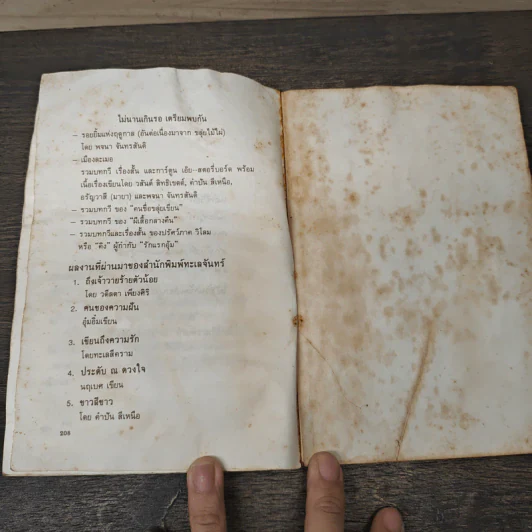 ไม่นานเกินรอ เตรียมพบกัน
– รอยยิ้มแห่งฤดูกาล (อันต่อเนื่องมาจาก ขลุ่ยไม้ไผ่)
โดย พจนา จันทรสันติ
– เมืองละเมอ
รวมบทกวี เรื่องสั้น และการ์ตูน เอ้ย--สตอรี่บอร์ด พร้อม
เนื้อเรื่องเขียนโดย วสันต์ สิทธิเขตต์, คำปัน สีเหนือ,
อรัญวาสี (มายา) และพจนา จันทรสันติ
– รวมบทกวี ของ "คนชื่อขลุ่ยเขียน"
– รวมบทกวี ของ "ผีเสื้อกลางคืน"
– รวมบทกวีและเรื่องสั้น ของปรัศว์ภาค วิโลม
หรือ "คิง" ผู้กำกับ "รักแรกอุ้ม"
ผลงานที่ผ่านมาของสำนักพิมพ์ทะเลจันทร์
1. ถึงเจ้าวายร้ายตัวน้อย
โดย วดีลดา เพียงศิริ
2. คนของความฝัน
อุ้มอิ้มเขียน
3. เขียนถึงความรัก
โดยทะเลสีคราม
4. ประดับ ณ ดวงใจ
นฤเบศ เขียน
5. ขาวสีขาว
โดย คำปัน สีเหนือ
208